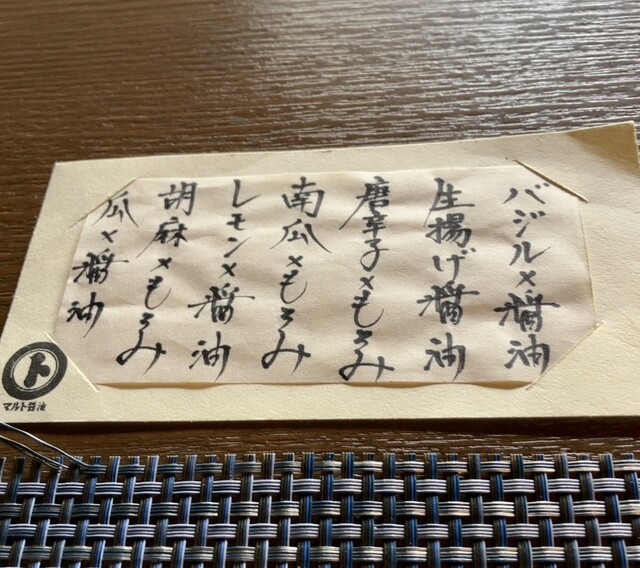 バジル×醤油
生揚げ醤油
唐辛子×もろみ
南瓜×もろみ
レモン×醤油
胡麻×もろみ
瓜×醤油
ト
マルト醤油